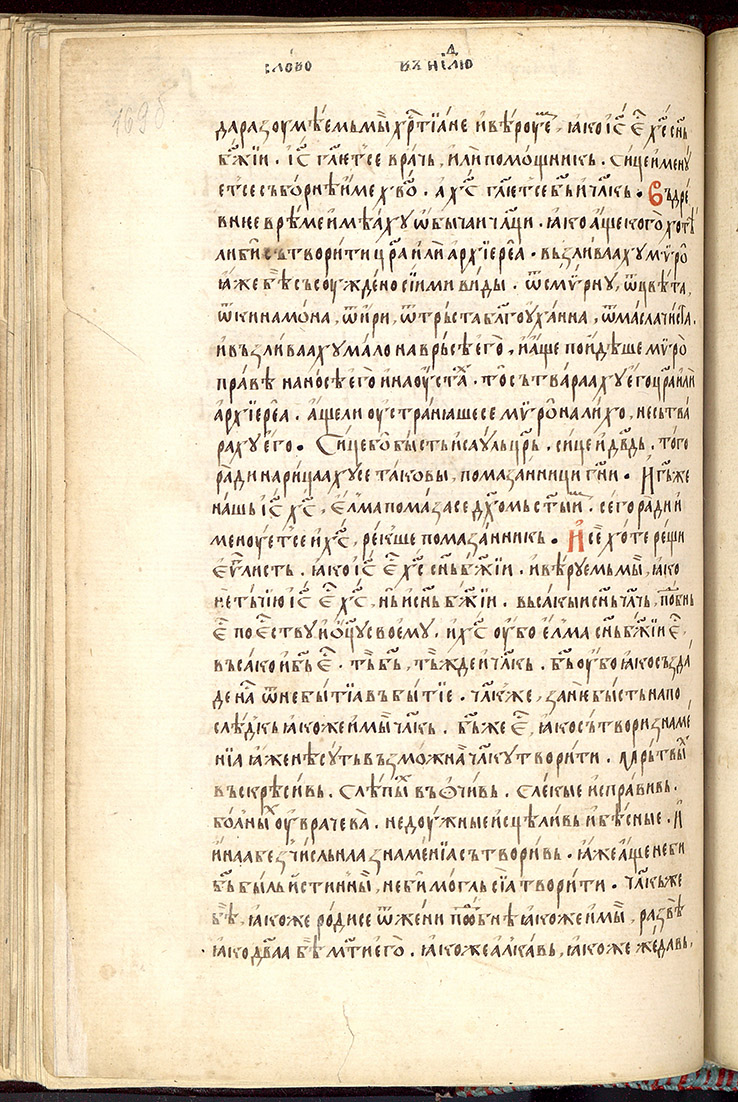 слово въ нⷣелю
169б
да разоумѣемь мы хрⷭ҇тїане и вѣроуеⷨ, ꙗко іс҃ еⷭ҇ хс҃ сн҃ь
бж҃їи . іс҃ гл҃ѥтсе врачь, или помощникь . сице именꙋ
етсе съборнѣ име хв҃о . а хс҃ гл҃ѥтсе бг҃ь и чл҃кь . Въ дрѣ
внѥе врѣме имѣахꙋ ѡбычаи чл҃ци . ꙗко аще кого хотѣ
ли би сътворити цр҃а или архїереа . възливаахꙋ мѵро
ꙗже бѣ съсоуждено сїими виды . ѿ смѵрнꙋ, ѿ цвѣта,
ѿ кинамѡна, ѿ ири, ѿ трьста бл҃гоуханна, ѿ масла чиста .
и възливаахꙋ мало на врьсѣ его . и аще поидѣше мѵро
правѣ на носѣ его и на оустаⷯ . то сътвараахꙋ его цр҃а или
архїереа . аще ли оустранꙗше се мѵро на лихо, не сътва
рахꙋ его . Сице бо бысть и саꙋль цр҃ь . сице и дв҃дь . того
ради нарицаахꙋ се таковы, помазанници гн҃и . И гь҃ же
нашь іс҃ хс҃, елма помаза се дх҃омь ст҃ыиⷨ . сего ради и
меноуетсе и хс҃, рекше помазанникь . И се хоте рещи
еѵⷢ҇листь . ꙗко іс҃ еⷭ҇ хс҃ сн҃ь бж҃їи . и вѣрꙋемь мы, ꙗко
не тьчїю іс҃ еⷭ҇ хс҃, нь и сн҃ь бж҃їи . въсакыи сн҃ь чл҃чь, поⷣбнь
еⷭ҇ по еⷭ҇ствꙋ и оц҃ꙋ своемꙋ . и хс҃ оубо елма сн҃ь бж҃їи еⷭ҇,
въсако и бг҃ь еⷭ҇ . тъ бг҃ь, тъжде и чл҃кь . бг҃ь оубо ꙗко създа
де на ѿ небытїа въ бытїе . чл҃кь же, зане бысть напо
слѣдкь ꙗкоже и мы чл҃кь . бг҃ь же еⷭ҇, ꙗко сътвори знаме
нїа ꙗже не сꙋть възможна чл҃кꙋ творити . Мрьтвыⷯ
въскрѣсивь . Слѣпыⷯ въѻчивь . Слекые исправивь .
болныⷯ оуврачева . недоужные исцѣливь и бѣсные . И
инаа бесчисльнаа знаменїа сътворивь . ꙗже аще не би
бг҃ь быль истинныи, не би могль сїа творити . чл҃кь же
бѣ, ꙗкоже роди се ѿ жени поⷣбнѣ ꙗкоже и мы, развѣ
ꙗко дв҃аа бѣ мт҃и его . ꙗкоже алкавь, ꙗкоже жедавь,